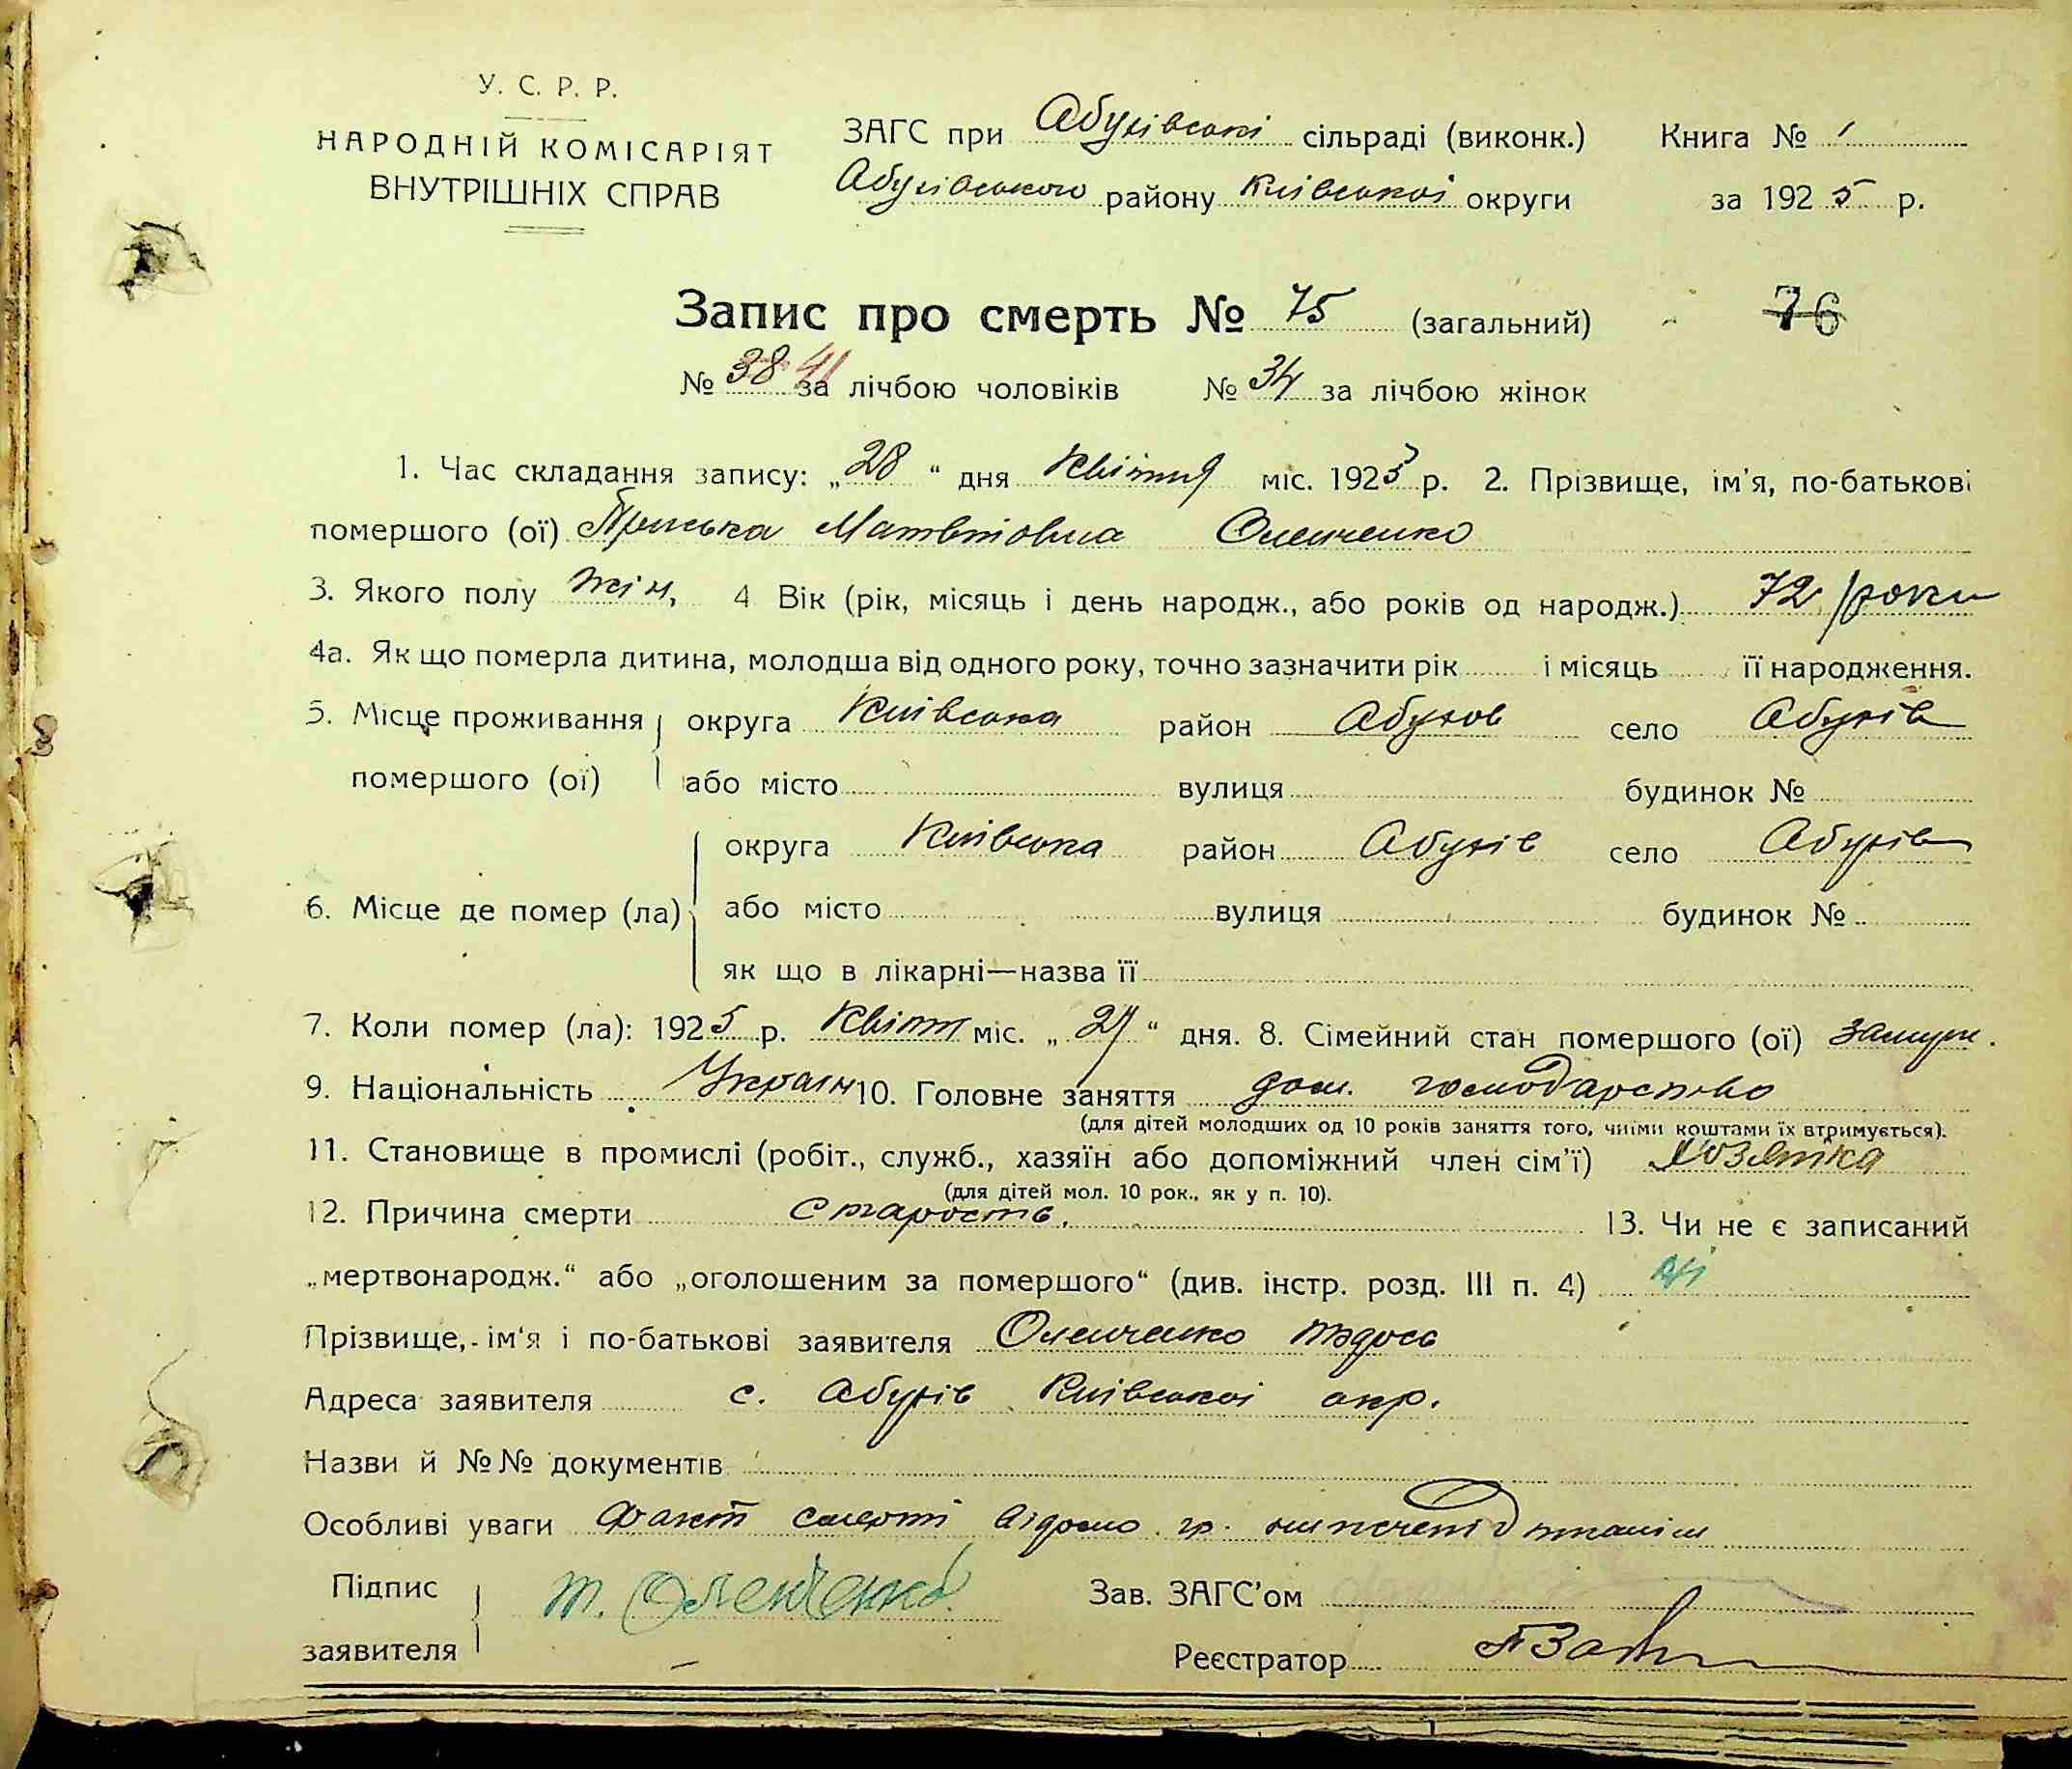 У. С. Р. Р.
НАРОДНІЙ КОМІСАРІЯТ
ВНУТРІШНІХ СПРАВ
ЗАГС при Абухівські сільраді (виконк.) Книга № 1
Абухівського району Київської округи за 1925 р.
Запис про смерть № 75 (загальний) 76
№ 38 41 за лічбою чоловіків № 34 за лічбою жінок
1. Час складання запису: „28“ дня Квітня міс. 1925 р. 2. Прізвище, ім'я, по-батькові
помершого (ої) Приська Матвіовна Оленченко
3. Якого полу жін, 4 Вік (рік, місяць і день народж., або років од народж.) 72 роки
4а. Як що померла дитина, молодша від одного року, точно зазначити рік і місяць її народження.
5. Місце проживання округа Київська район Абухов село Абухів
помершого (ої) або місто вулиця будинок №
округа Київська район Абухів село Абухів
6. Місце де помер (ла) або місто вулиця будинок №
як що в лікарні—назва її
7. Коли помер (ла): 1925 р. Квітня міс. „27“ дня. 8. Сімейний стан помершого (ої) замуж.
9. Національність Україн 10. Головне заняття дом. господарство
(для дітей молодших од 10 років заняття того, чиїми коштами їх втримується).
11. Становище в промислі (робіт., служб., хазяїн або допоміжний член сім'ї) Хозяйка
(для дітей мол. 10 рок., як у п. 10).
12. Причина смерти Старость. 13. Чи не є записаний
„мертвонародж.“ або „оголошеним за помершого“ (див. інстр. розд. III п. 4) ні
Прізвище, ім'я і по-батькові заявителя Оленченко Тодось
Адреса заявителя с. Абухів Київської окр.
Назви й №№ документів
Особливі уваги Факт смерті відомо гр.
Підпис
заявителя Т. Оленченко
Зав. ЗАГС'ом
Реєстратор